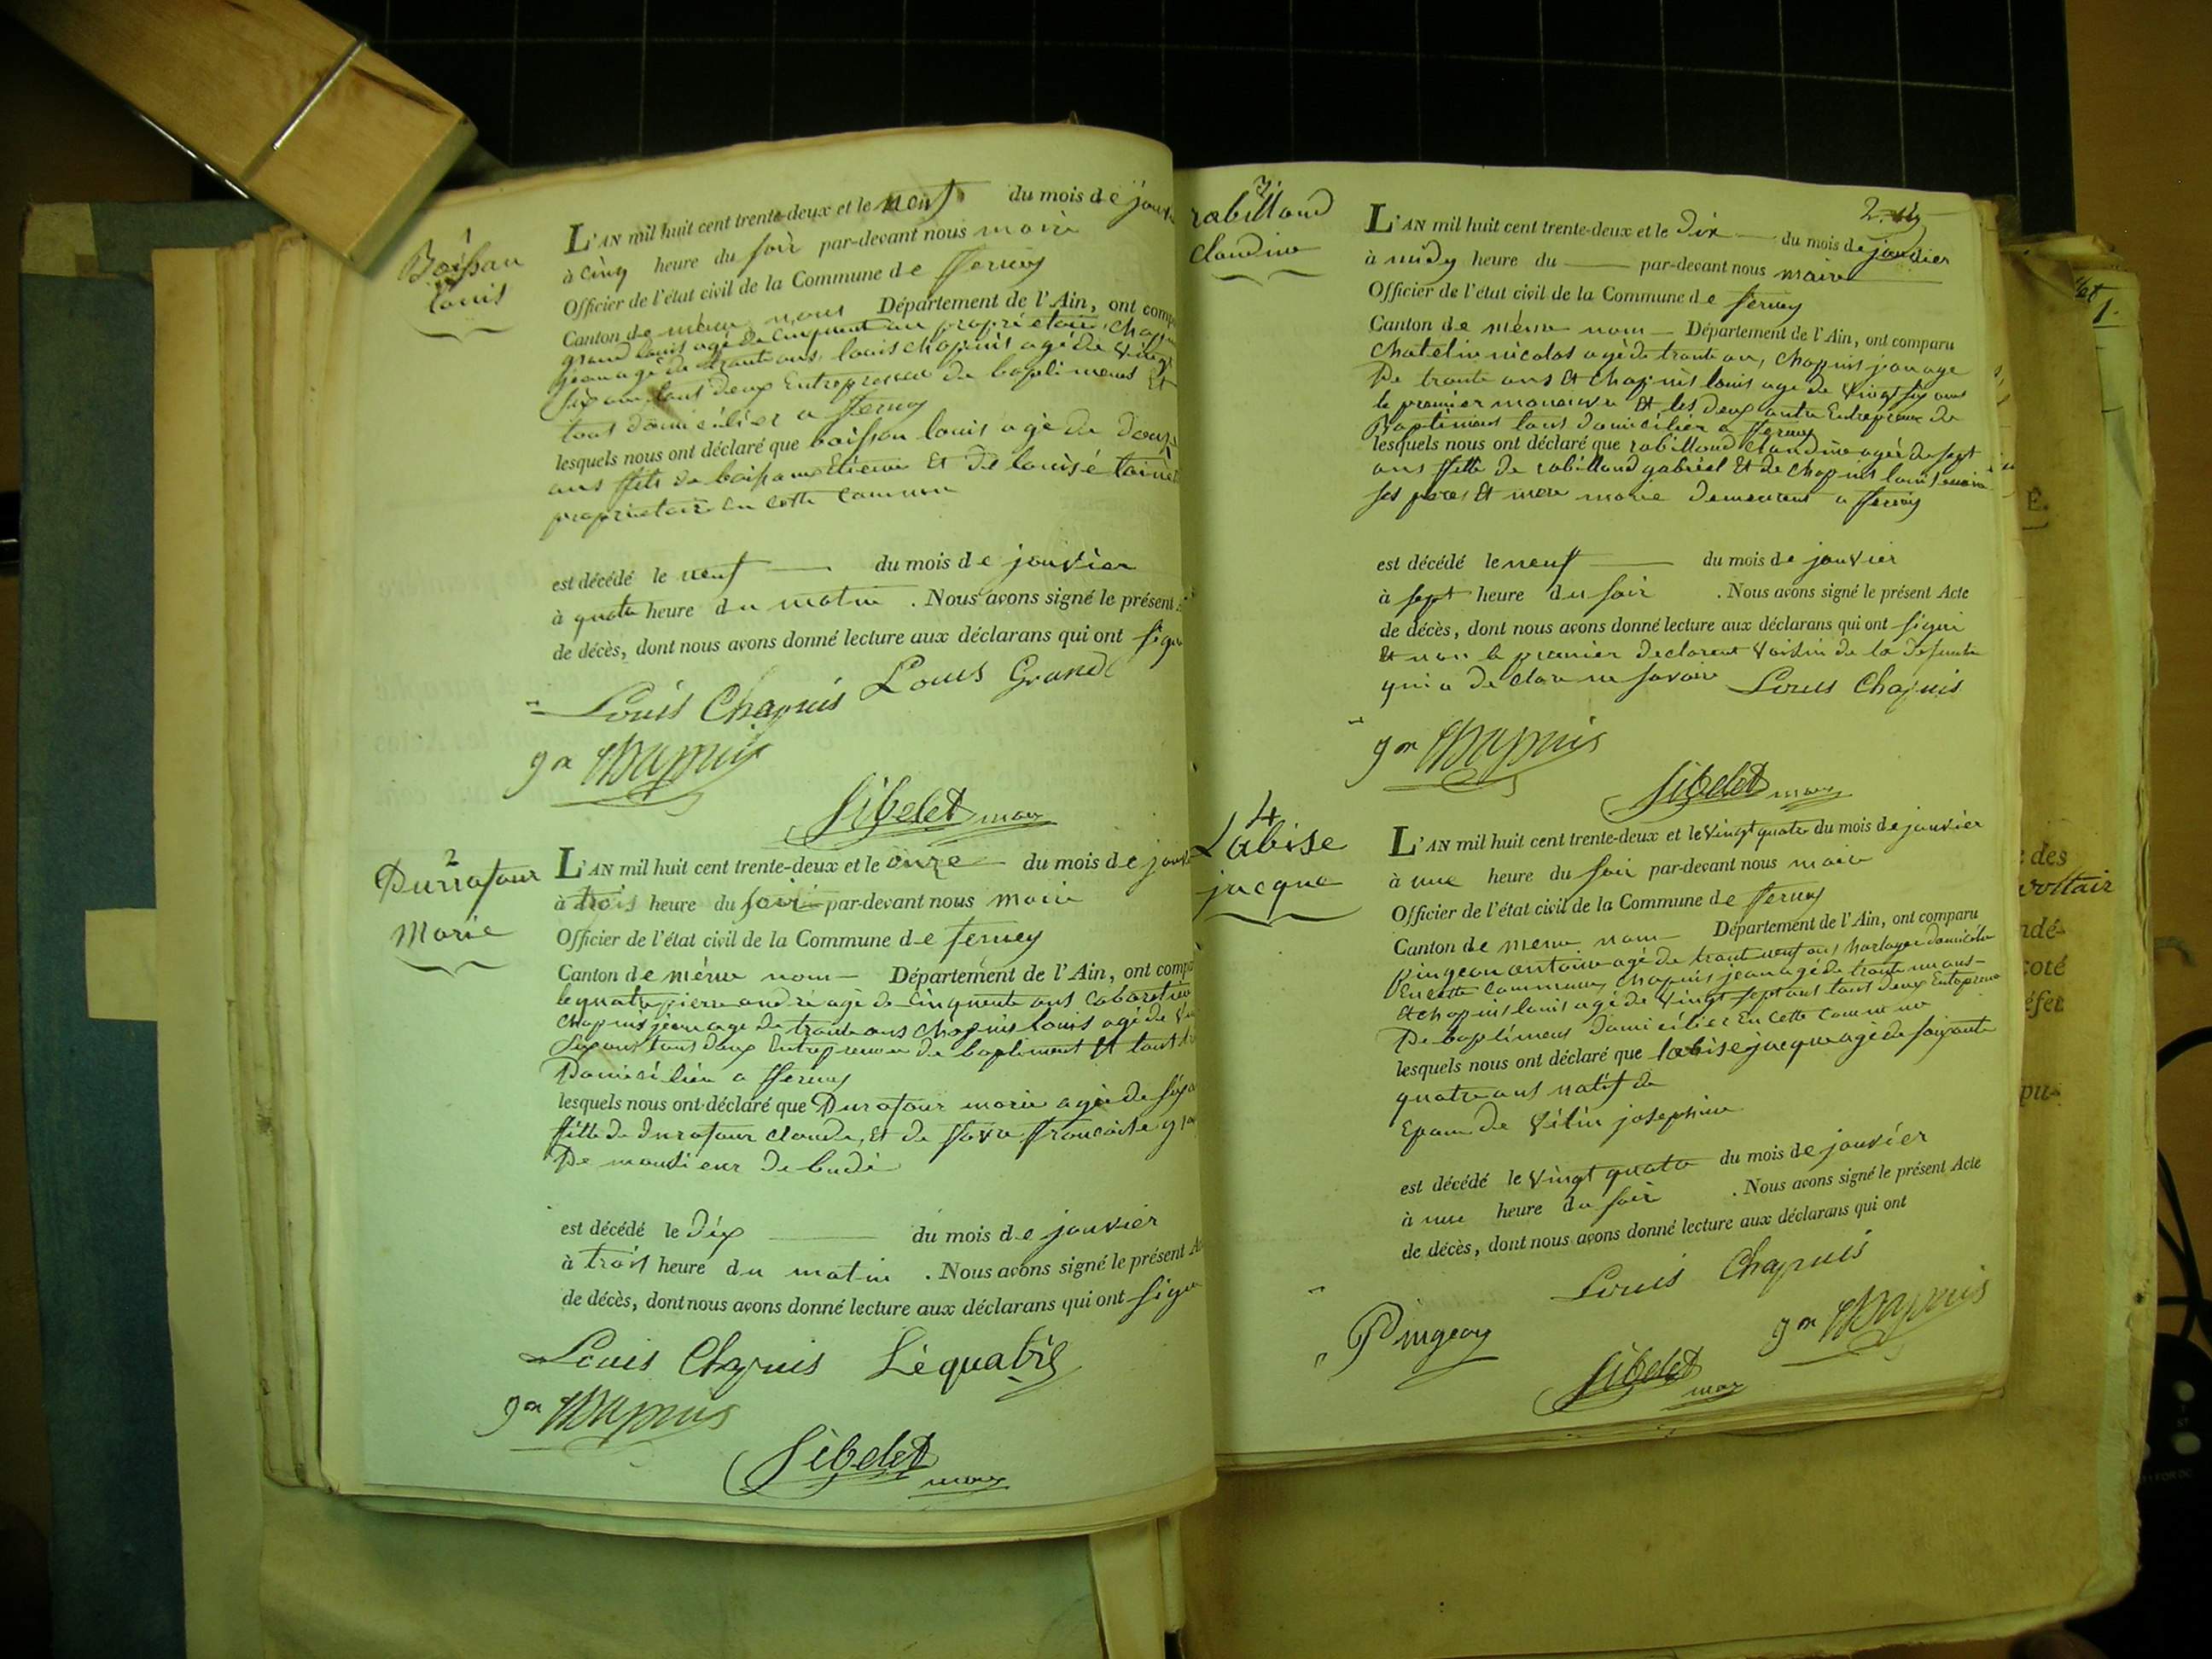 1
Boissau
Louis
L'AN mil huit cent trente-deux et le neuf du mois de
à cinq heure du soir par-devant nous maire
Officier de l'état civil de la Commune de fferney
Canton de même nom Département de l'Ain, ont
grand louis agé de cinquent an proprietaire,
jean agé de trante ans, louis chapuis agé de
six ans tous deux Entrepreneur de baptimens Et
tous domicilier a fferney
lesquels nous ont déclaré que boisson louis agé de
ans ffils de Etienne Et de louise
proprietaire en cette commune
est décédé le neuf du mois de janvier
à quatre heure du matin . Nous avons signé le présent
de décès, dont nous avons donné lecture aux déclarans qui ont
Louis Chapuis Louis Grand
jn Chapuis
Sibelet maire
2
Durrafour
Marie
L'AN mil huit cent trente-deux et le onze du mois de
à trois heure du soir par-devant nous maire
Officier de l'état civil de la Commune de ferney
Canton de même nom Département de l'Ain, ont
lequatre pierre andré agé de Cinquente ans Cabaretier
chapuis jean age de trante ans chapuis louis agé de
six ans tous deux Entrepreneur de baptiment Et tous
Domicilier a fferney
lesquels nous ont déclaré que Durafour marie agée de
ffille de durafour claude, Et de favre ffrancoise
De monsieur de budé
est décédé le dix du mois de janvier
à trois heure du matin . Nous avons signé le présent
de décès, dont nous avons donné lecture aux déclarans qui ont
Louis Chapuis Léquatre
jn Chapuis
Sibelet maire
3
rabilloud
claudine
2.
L'AN mil huit cent trente-deux et le dix du mois de janvier
à midy heure du par-devant nous maire
Officier de l'état civil de la Commune de ferney
Canton de même nom Département de l'Ain, ont comparu
Chatelin nicolas agé de trante an, chapuis jean age
De trante ans Et chapuis louis age de vingt six ans
le premier manœuvre Et les deux autre Entrepreneur de
Baptimens tous domicilier a fferney
lesquels nous ont déclaré que rabilloud claudine agée de sept
ans ffille de rabilloud gabriel Et de chapuis
ses pere Et mere demeurent a fferney
est décédé le neuf du mois de janvier
à sept heure du soir . Nous avons signé le présent Acte
de décès, dont nous avons donné lecture aux déclarans qui ont signé
Et non le premier declarant voisin de la defunte
qui a declaré ne savoir Louis Chapuis
jn Chapuis
Sibelet maire
4
Labise
jacque
L'AN mil huit cent trente-deux et le vingt quatre du mois de janvier
à une heure du soir par-devant nous maire
Officier de l'état civil de la Commune de fferney
Canton de meme nom Département de l'Ain, ont comparu
pingeon antoine agé de trant neuf ans horloger domicilié
En cette commune, chapuis jean agé de trante un ans
Et chapuis louis agé de vingt sept ans tous deux Entrepreneur
De baptimens domicilier En cette commune
lesquels nous ont déclaré que labise jacque agé de soixante
quatre ans natif de
Epoux de vilin josephine
est décédé le vingt quatre du mois de janvier
à une heure du soir . Nous avons signé le présent Acte
de décès, dont nous avons donné lecture aux déclarans qui ont
Louis Chapuis
Pingeon
jn Chapuis
Sibelet maire
1.
des
voltair
ndé-
coté
pu-